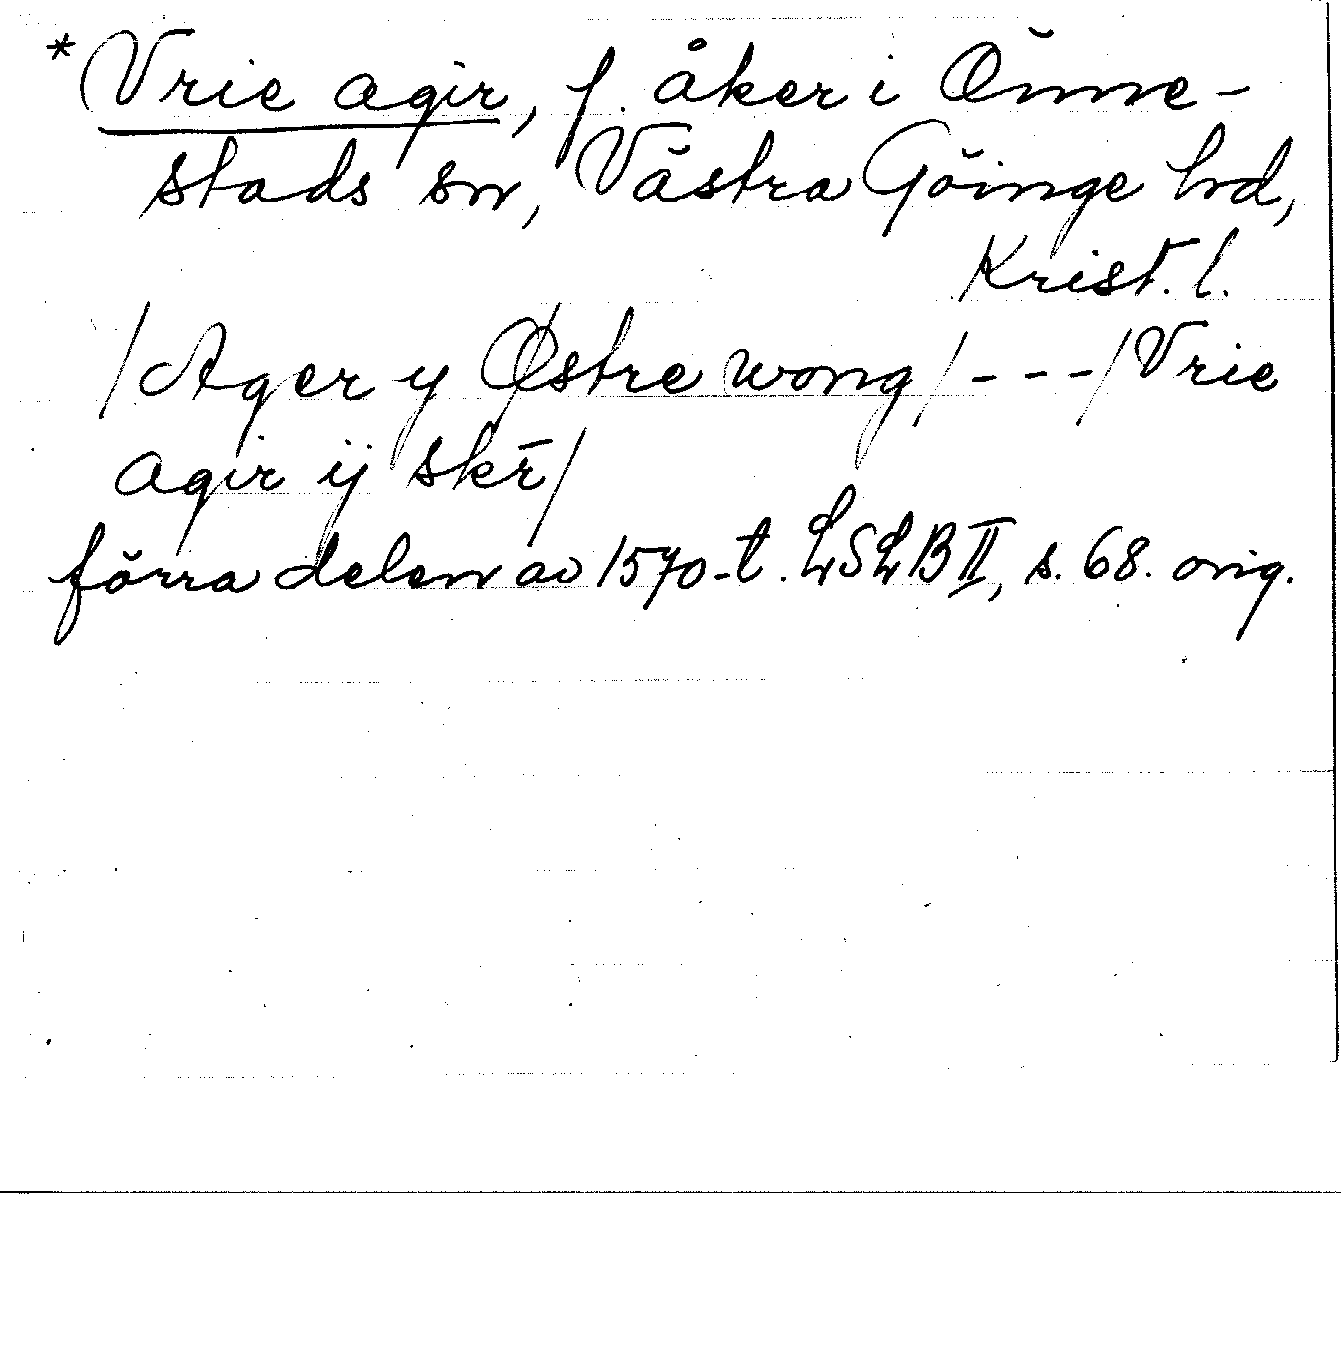 *Vrie agir, f. åker i Önne-
stads sn, Västra Göinge hd,
Krist. l.
/Ager y Østre wong/---/Vrie
agir ij skr̄/
förra delen av 1570-t. LSLB II, s. 68. orig.